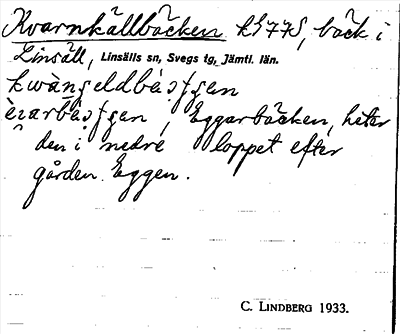 Kvarnkällbäcken k577S, bäck i
Linsäll, Linsälls sn, Svegs tg, Jämtl. län.
Eggarbäcken, heter
den i nedre loppet efter
gården Eggen.
C. LINDBERG 1933.